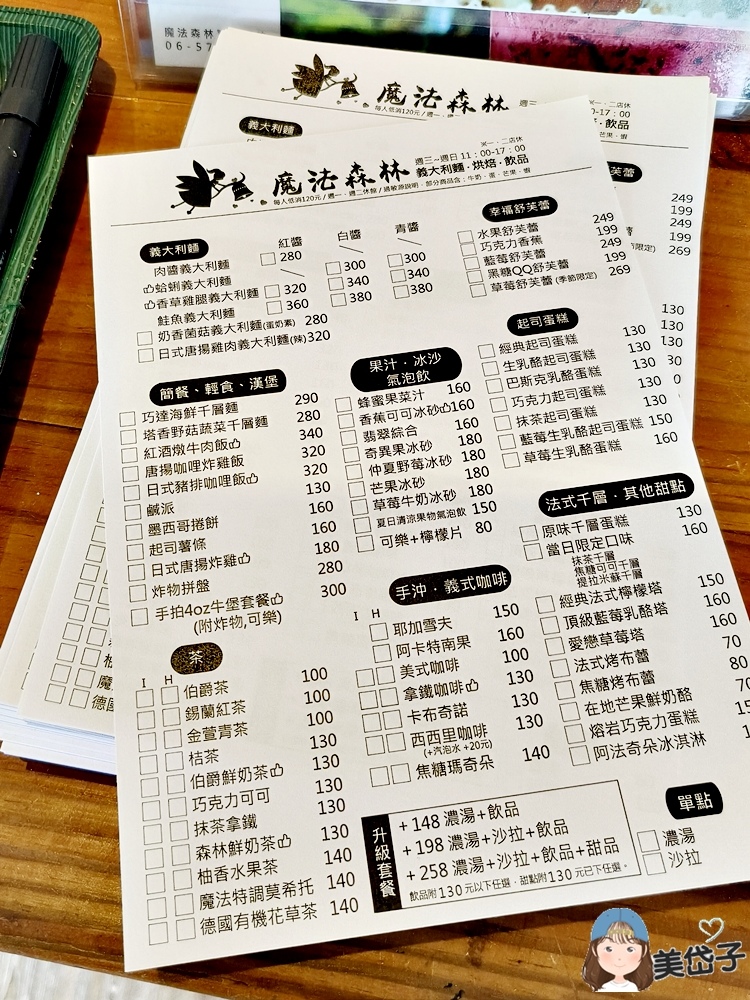 魔法森林
06-57
魔法森林
義大利麵
249
199
249
199
269
130
130
130
魔法森林
週三~週日 11:00-17:00
義大利麵·烘焙·飲品
每人低消120元/週一、週二休館/過敏源說明,部分商品含:牛奶、蛋、芒果、蝦
義大利麵 紅醬 白醬 青醬
肉醬義大利麵 280
蛤蜊義大利麵 300 300
香草雞腿義大利麵 320 340 340
鮭魚義大利麵 360 380 380
奶香菌菇義大利麵(蛋奶素) 280
日式唐揚雞肉義大利麵(辣)320
幸福舒芙蕾
水果舒芙蕾 249
巧克力香蕉 199
藍莓舒芙蕾 249
黑糖QQ舒芙蕾 199
草莓舒芙蕾(季節限定) 269
簡餐、輕食、漢堡
巧達海鮮千層麵 290
塔香野菇蔬菜千層麵 280
紅酒燉牛肉飯 340
唐揚咖哩炸雞飯 320
日式豬排咖哩飯 320
鹹派 130
墨西哥捲餅 160
起司薯條 160
日式唐揚炸雞 180
炸物拼盤 280
手拍4oz牛堡套餐 300
(附炸物,可樂)
果汁·冰沙
氣泡飲
蜂蜜果菜汁 160
香蕉可可冰砂 160
翡翠綜合 160
奇異果冰砂 180
仲夏野莓冰砂 180
芒果冰砂 180
草莓牛奶冰砂 180
夏日清涼果物氣泡飲 150
可樂+檸檬片 80
起司蛋糕
經典起司蛋糕 130
生乳酪起司蛋糕 130
巴斯克乳酪蛋糕 130
巧克力起司蛋糕 130
抹茶起司蛋糕 130
藍莓生乳酪起司蛋糕 150
草莓生乳酪起司蛋糕 160
法式千層·其他甜點
原味千層蛋糕 130
當日限定口味 160
抹茶千層
焦糖可可千層
提拉米蘇千層
經典法式檸檬塔 150
頂級藍莓乳酪塔 160
愛戀草莓塔 160
法式烤布蕾 70
焦糖烤布蕾 80
在地芒果鮮奶酪 70
熔岩巧克力蛋糕
阿法奇朵冰淇淋
茶
I H
伯爵茶 100
錫蘭紅茶 100
金萱青茶 100
桔茶 130
伯爵鮮奶茶 130
巧克力可可 130
抹茶拿鐵 130
森林鮮奶茶 130
柚香水果茶 140
魔法特調莫希托 140
德國有機花草茶 140
手沖·義式咖啡
I H
耶加雪夫 150
阿卡特南果 160
美式咖啡 100
拿鐵咖啡 130
卡布奇諾 130
西西里咖啡 130
(+汽泡水 +20元)
焦糖瑪奇朵 140
升級套餐
+148 濃湯+飲品
+198 濃湯+沙拉+飲品
+258 濃湯+沙拉+飲品+甜品
飲品附130元以下任選,甜點附130元已下任選。
單點
濃湯
沙拉
美岱子